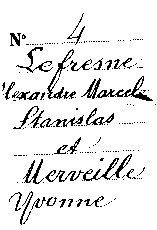 Nº 4
Lefresne
Alexandre Marcel
Stanislas
et
Merveille
Yvonne